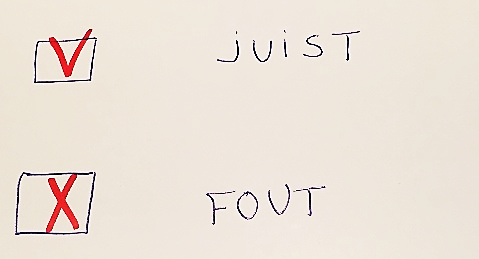 jUiST
FOUT